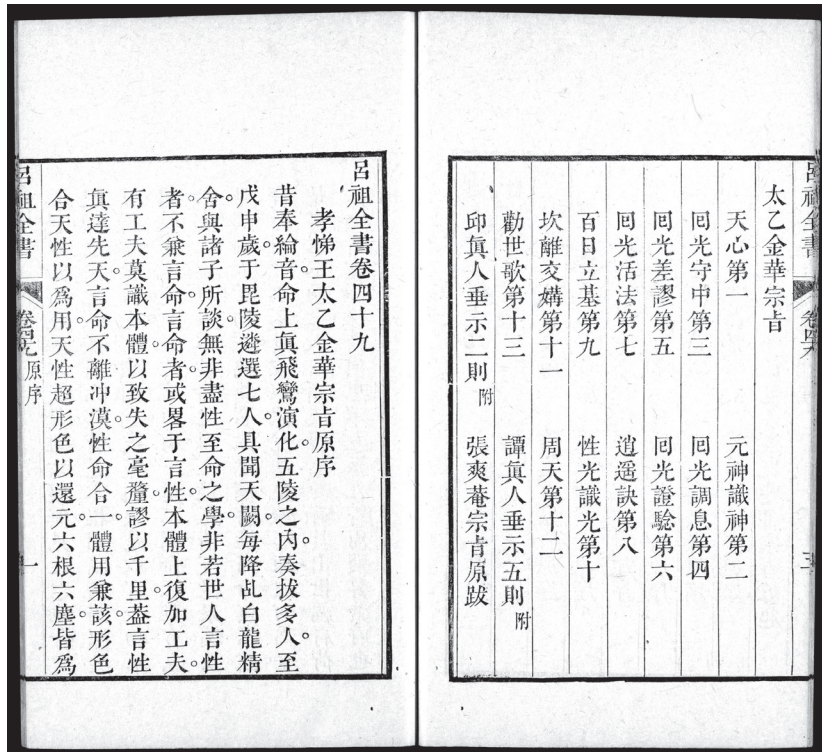 太乙金華宗旨
天心第一　元神識神第二
囘光守中第三　囘光調息第四
囘光差謬第五　囘光證驗第六
囘光活法第七　逍遥訣第八
百日立基第九　性光識光第十
坎離交媾第十一　周天第十二
勸世歌第十三　譚眞人垂示五則附
邱眞人垂示二則附　張爽菴宗旨原跋
呂祖全書　卷四十九　三
呂祖全書卷四十九
孝悌王太乙金華宗旨原序
昔奉綸音命上眞飛鸞演化五陵之內。奏拔多人。至
戊申歲于毘陵遴選七人具聞天闕。每降乩白龍精
舍。與諸子所談無非盡性至命之學。非若世人言性
者不兼言命。言命者或畧于言性。本體上復加工夫。
有工夫莫識本體。以致失之毫釐。謬以千里。葢言性
眞達先天。言命不離冲漠。性命合一。體用兼該。形色
合天性以爲用。天性超形色以還元。六根六塵。皆爲
呂祖全書　卷四十九原序　一